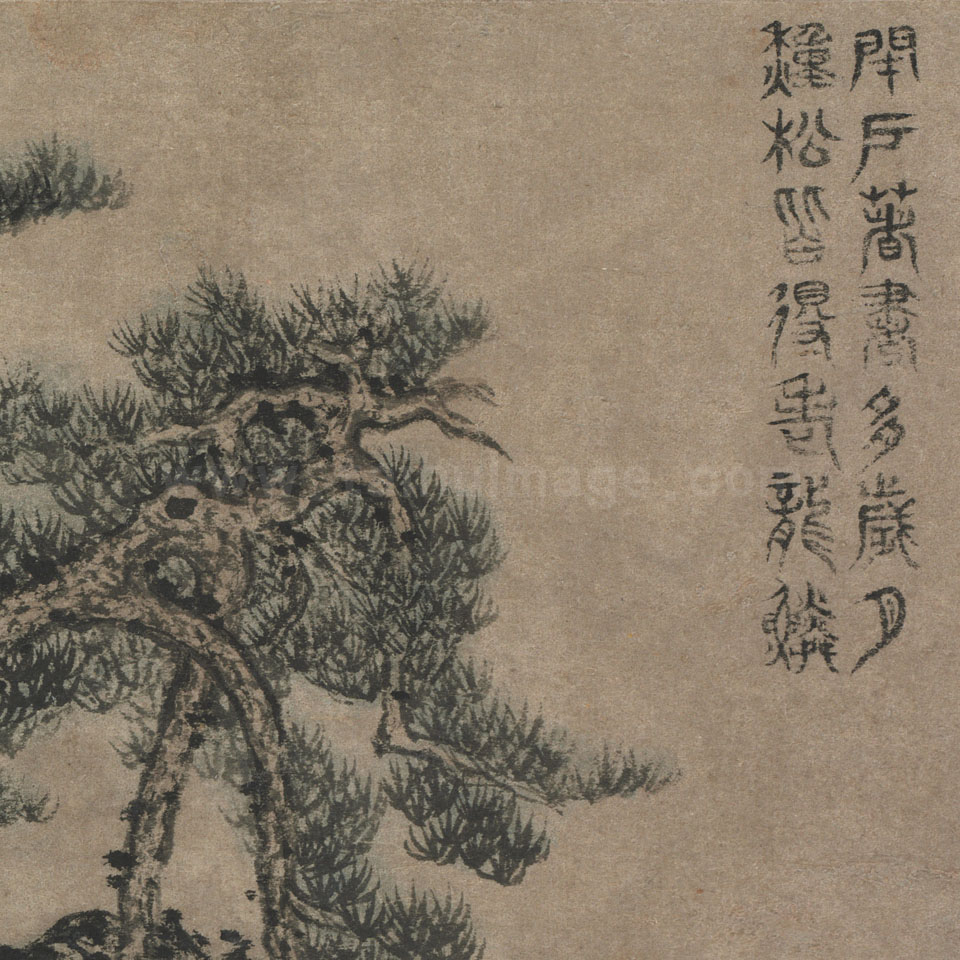 閉戶著書多歲月
種松皆得老龍鱗